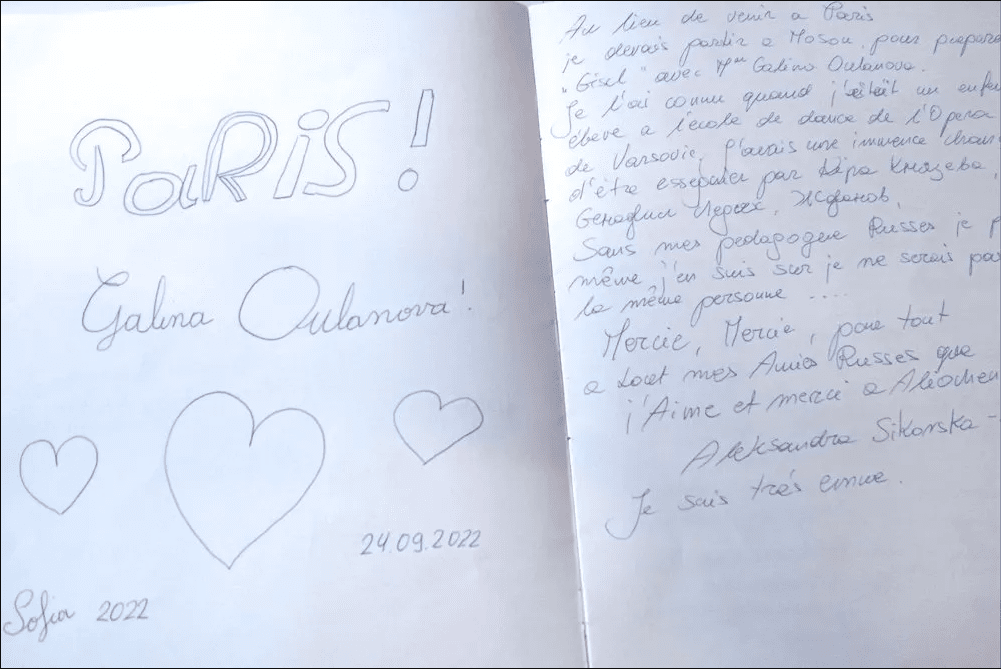 PaRiS!
Galina Oulanova!
24.09.2022
Sofia 2022
Au lieu de venir a Paris
je devais partir a Moscou pour prepare
"Gisel" avec Mme Galina Oulanova.
Je l'ai connu quand j'étéit un enfa
élève a l'école de dance de l'Opera
de Varsovie, j'avais une immence chan
d'être par Кира Князева,
Генадии Жданов,
Sans mes pedagogue Russes je p
même j'en suis sur je ne serais pas
la même personne ....
Mercie, Mercie, pour tout
a tout mes Amis Russes que
j'Aime et merci a Aliochen
Aleksandra Sikorska -
Je suis très emue.